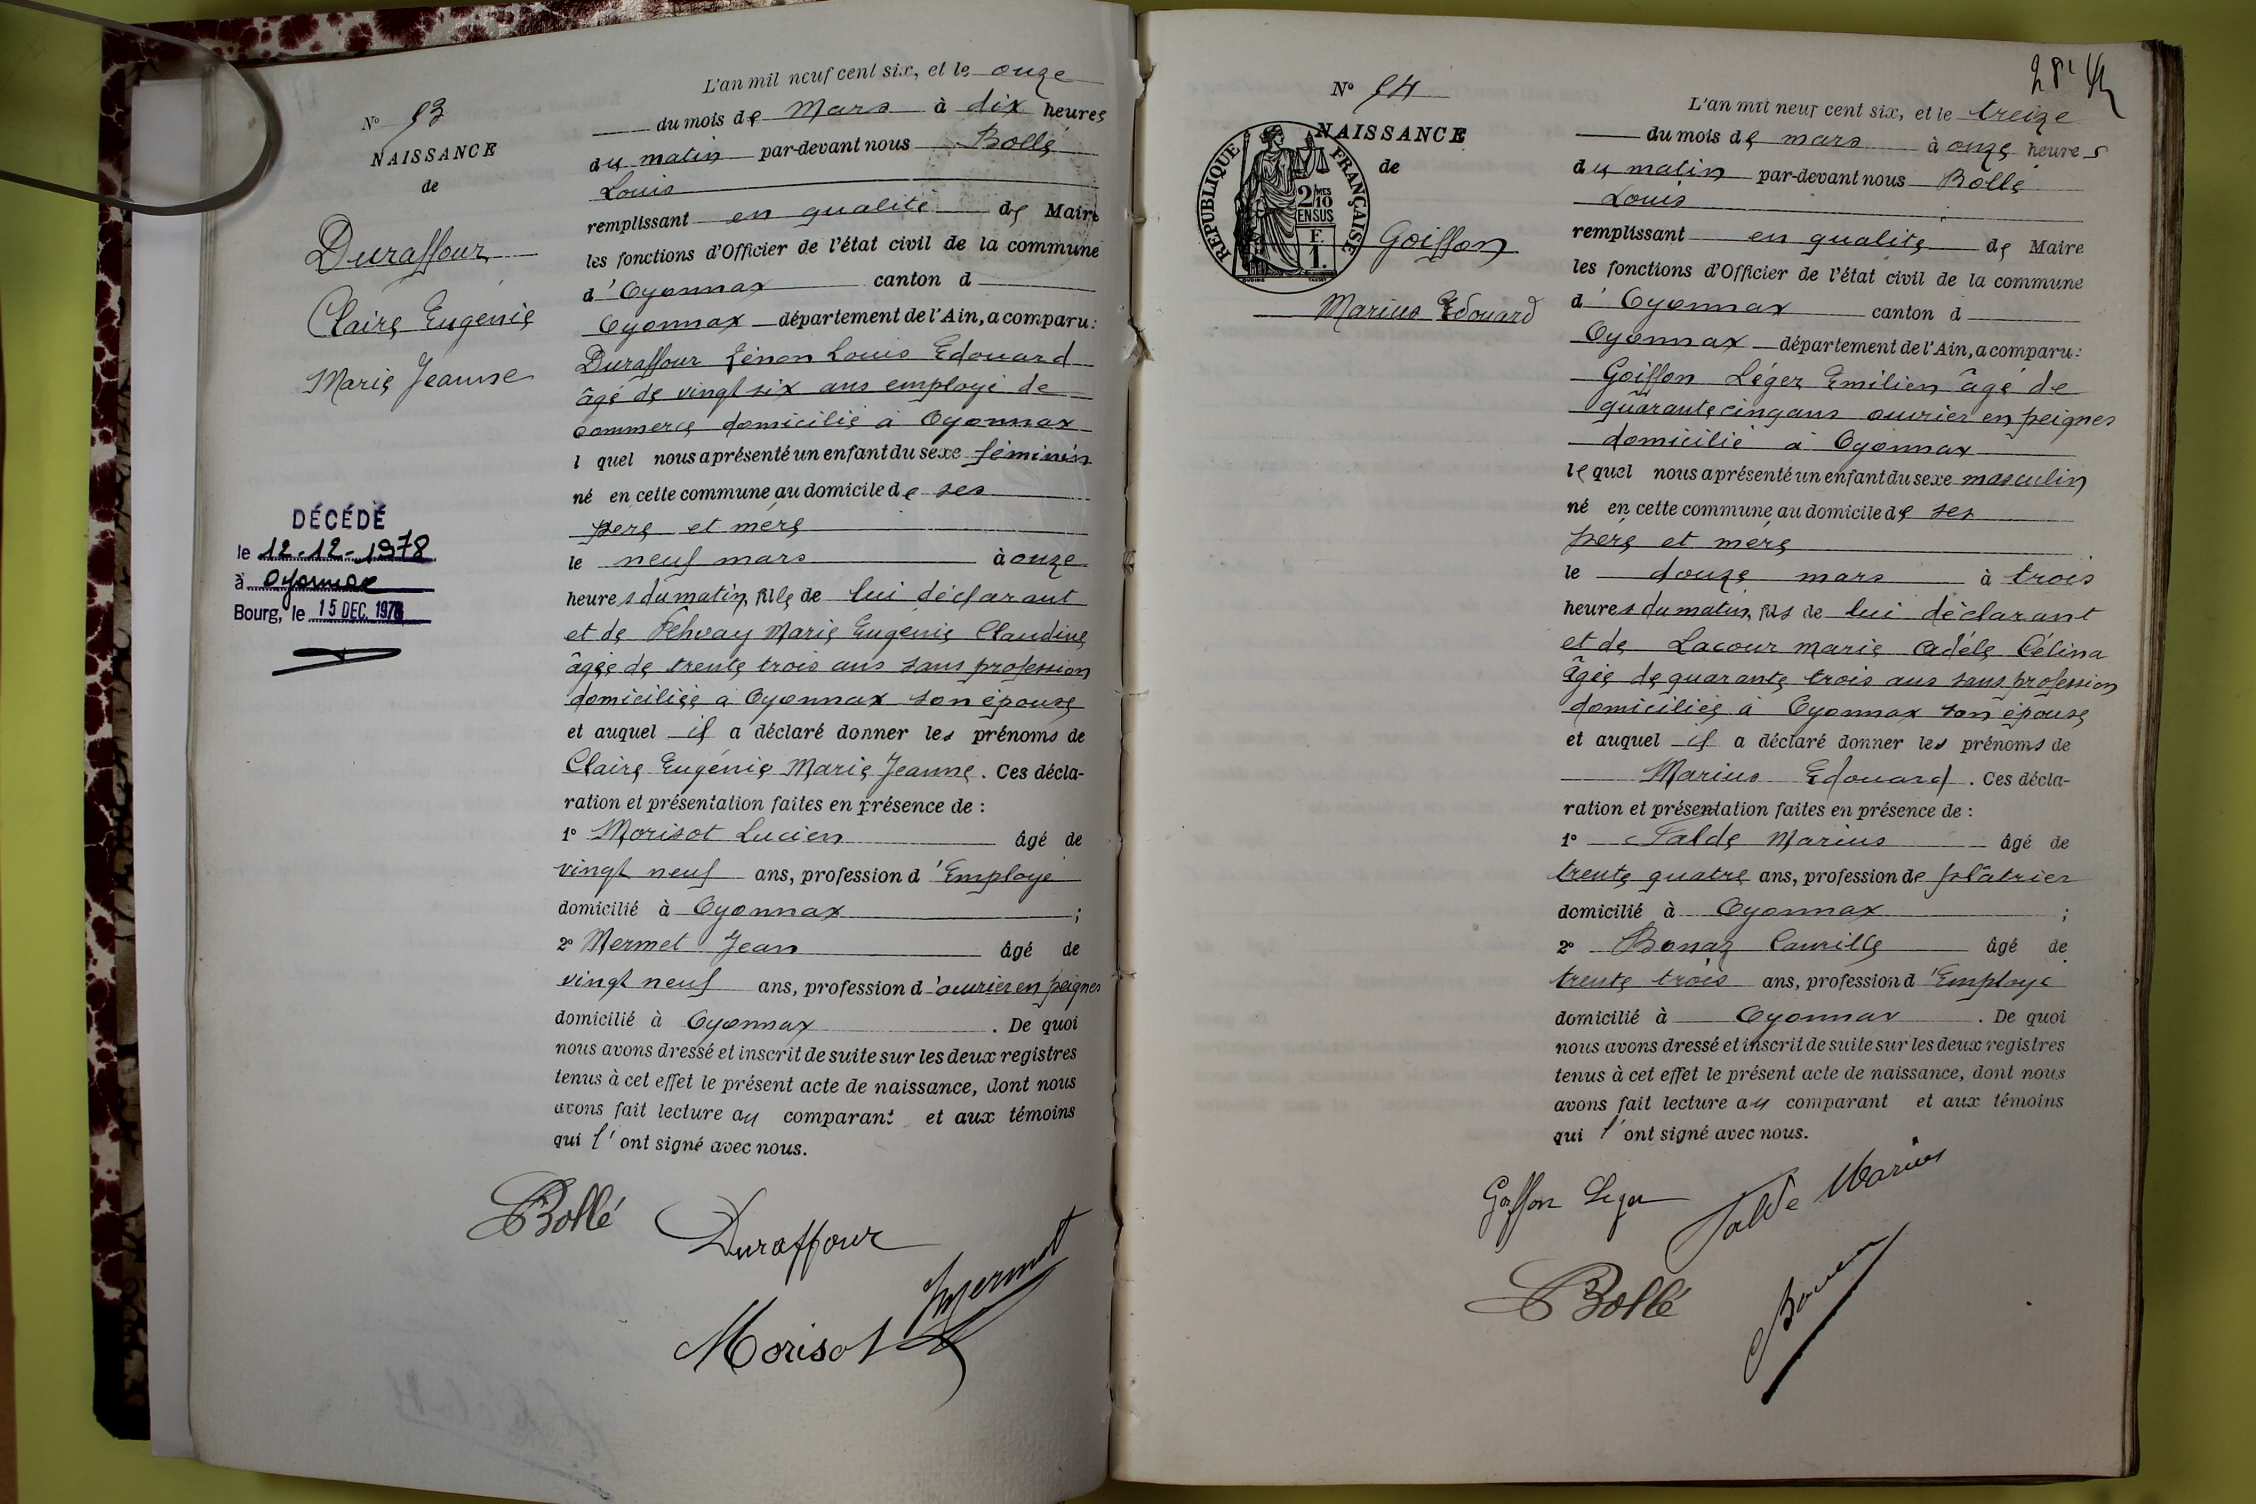 N° 53
NAISSANCE
de
Duraffour
Claire Eugénie
Marie Jeanne
DÉCÉDÉ
le 12-12-1978
à Oyonnax
Bourg, le 15 DEC. 1978
L'an mil neuf cent six, et le onze
du mois de Mars à dix heures
du matin par-devant nous Bollé
Louis
remplissant en qualité de Maire
les fonctions d'Officier de l'état civil de la commune
d'Oyonnax canton d
Oyonnax département de l'Ain, a comparu:
Duraffour Zénon Louis Edouard
âgé de vingt six ans employé de
commerce domicilié à Oyonnax
l quel nous a présenté un enfant du sexe féminin
né en cette commune au domicile de ses
père et mère
le neuf mars à onze
heures du matin, fille de lui déclarant
et de Marie Eugénie Claudine
âgée de trente trois ans sans profession
domiciliée à Oyonnax son épouse
et auquel il a déclaré donner les prénoms de
Claire Eugénie Marie Jeanne. Ces décla-
ration et présentation faites en présence de :
1° Morisot Lucien âgé de
vingt neuf ans, profession d'Employé
domicilié à Oyonnax ;
2° Mermet Jean âgé de
vingt neuf ans, profession d'ouvrier en peignes
domicilié à Oyonnax . De quoi
nous avons dressé et inscrit de suite sur les deux registres
tenus à cet effet le présent acte de naissance, dont nous
avons fait lecture au comparant et aux témoins
qui l'ont signé avec nous.
Bollé Duraffour
Morisot Mermet
N° 54
NAISSANCE
de
RÉPUBLIQUE FRANÇAISE
2/10
EN SUS
F.
1.
Goiffon
Marius Edouard
28
L'an mil neuf cent six, et le treize
du mois de mars à onze heures
du matin par-devant nous Bollé
Louis
remplissant en qualité de Maire
les fonctions d'Officier de l'état civil de la commune
d'Oyonnax canton d
Oyonnax département de l'Ain, a comparu:
Goiffon Léger Emilien âgé de
quarante cinq ans ouvrier en peignes
domicilié à Oyonnax
lequel nous a présenté un enfant du sexe masculin
né en cette commune au domicile de ses
père et mère
le douze mars à trois
heures du matin, fils de lui déclarant
et de Lacour Marie Adèle Célina
âgée de quarante trois ans sans profession
domiciliée à Oyonnax son épouse
et auquel il a déclaré donner les prénoms de
Marius Edouard . Ces décla-
ration et présentation faites en présence de :
1° Talde Marius âgé de
trente quatre ans, profession de plâtrier
domicilié à Oyonnax ;
2° Bonaz Camille âgé de
trente trois ans, profession d'Employé
domicilié à Oyonnax . De quoi
nous avons dressé et inscrit de suite sur les deux registres
tenus à cet effet le présent acte de naissance, dont nous
avons fait lecture au comparant et aux témoins
qui l'ont signé avec nous.
Goiffon Léger Talde Marius
Bollé